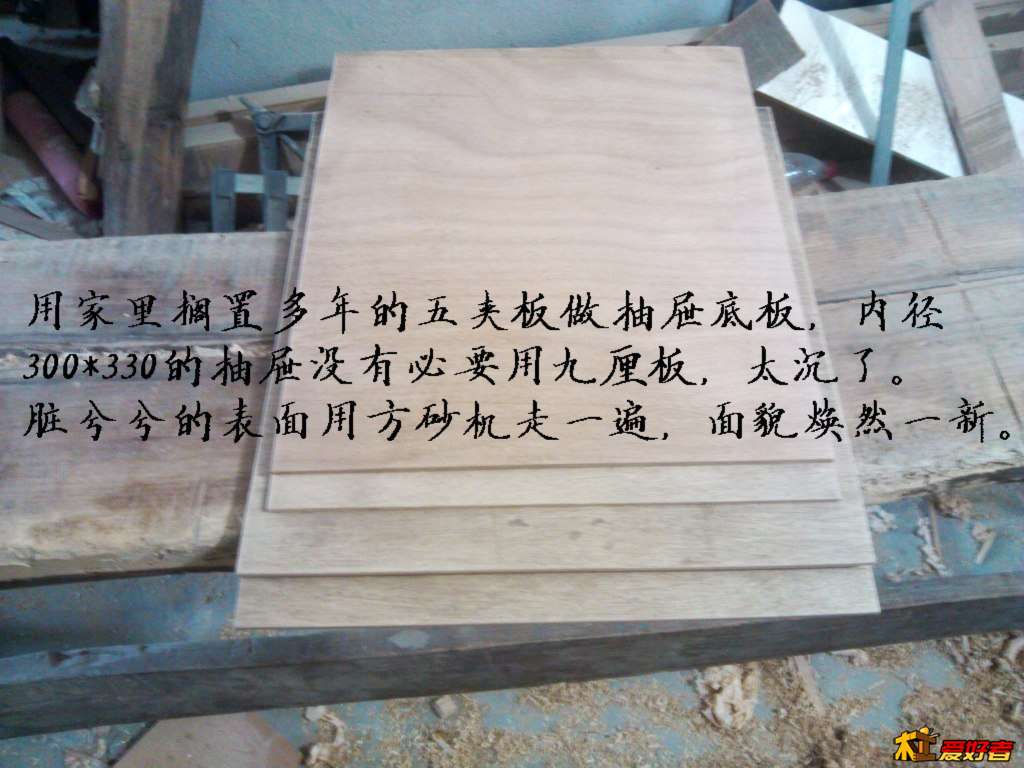 用家里搁置多年的五夹板做抽屉底板，内径
300*330的抽屉没有必要用九厘板，太沉了。
脏兮兮的表面用方砂机走一遍，面貌焕然一新。
木工爱好者